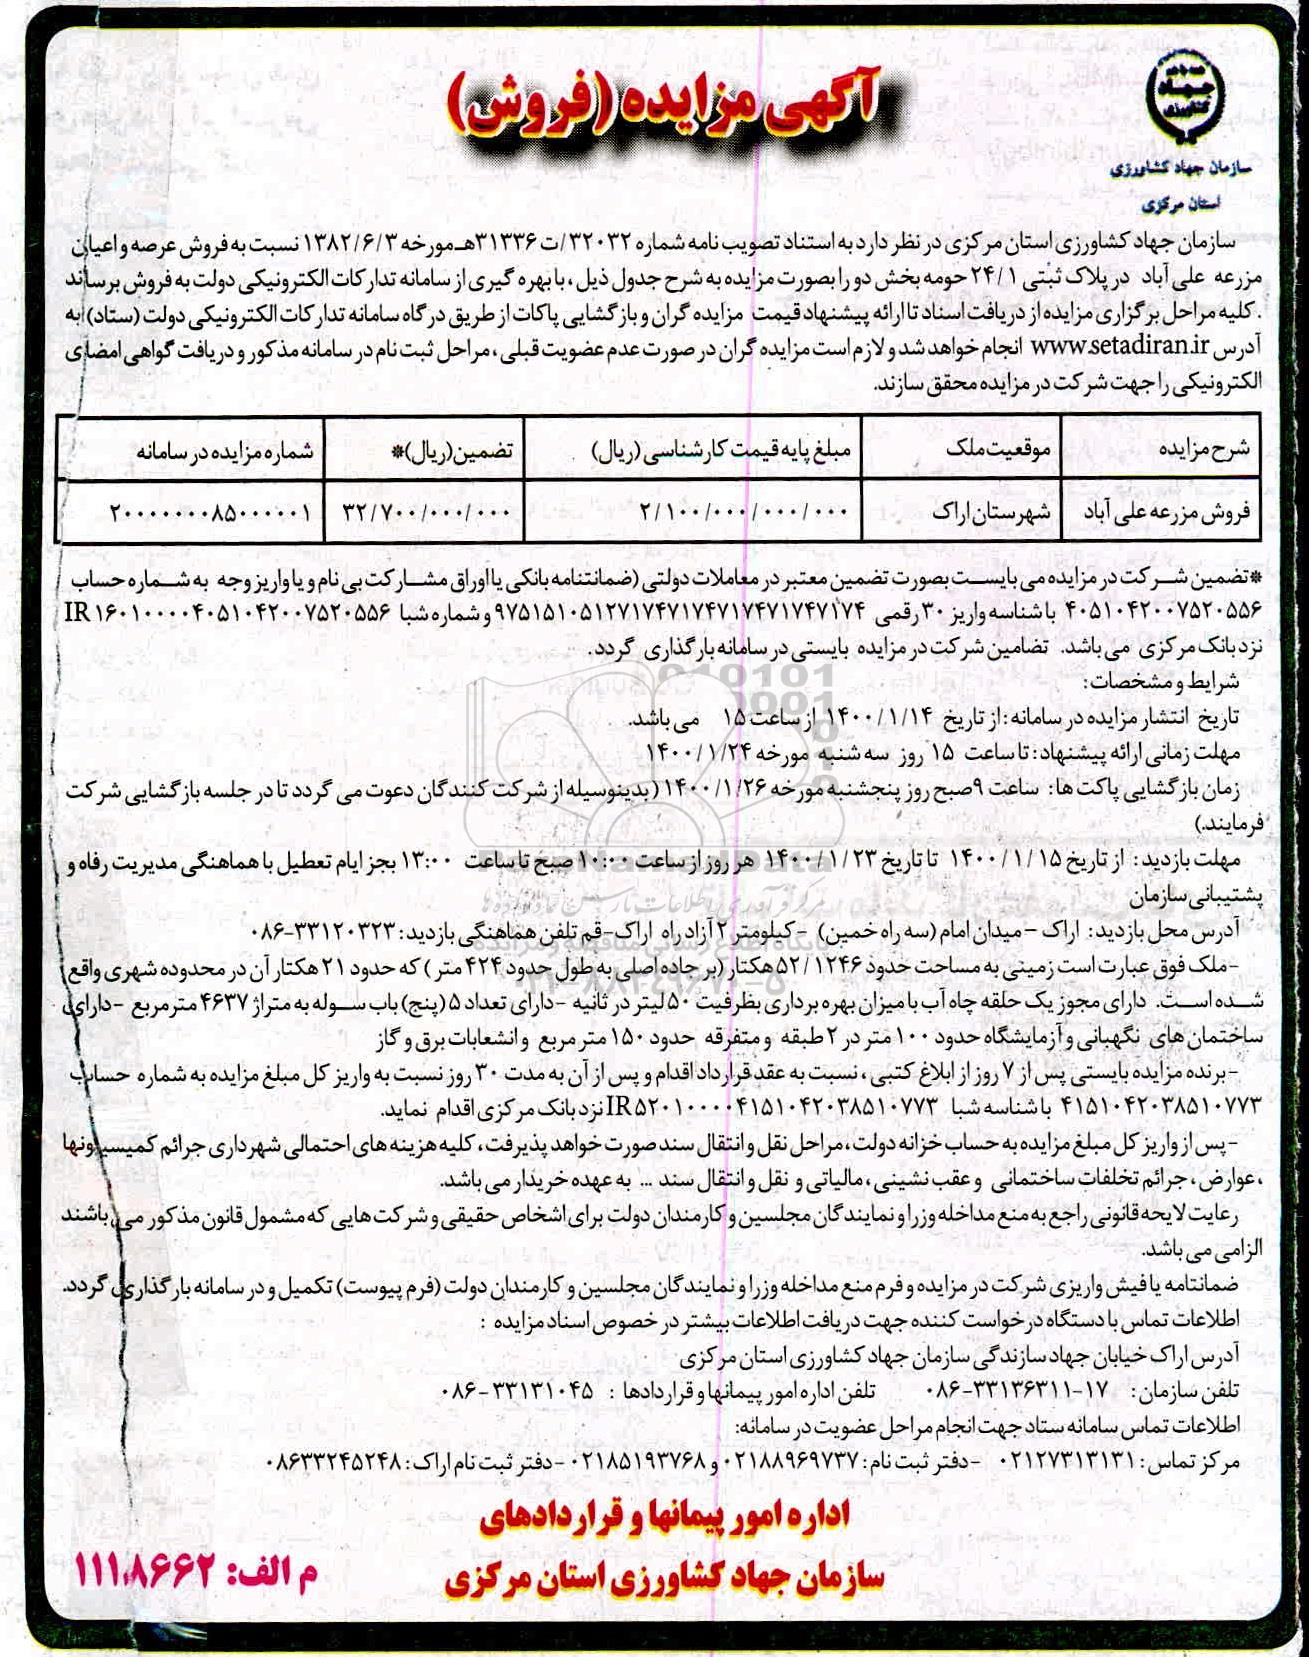 آگهی مزایده (فروش)
جهاد
کشاورزی
سازمان جهاد کشاورزی
استان مرکزی
سازمان جهاد کشاورزی استان مرکزی در نظر دارد به استناد تصویب نامه شماره ۳۲۰۳۲/ت ۳۱۳۳۶هـ مورخه ۱۳۸۲/۶/۳ نسبت به فروش عرصه و اعیان
مزرعه علی آباد در پلاک ثبتی ۲۴/۱ حومه بخش دو را بصورت مزایده به شرح جدول ذیل ، با بهره گیری از سامانه تدارکات الکترونیکی دولت به فروش برساند
. کلیه مراحل برگزاری مزایده از دریافت اسناد تا ارائه پیشنهاد قیمت مزایده گران و بازگشایی پاکات از طریق درگاه سامانه تدارکات الکترونیکی دولت (ستاد) به
آدرس www.setadiran.ir انجام خواهد شد و لازم است مزایده گران در صورت عدم عضویت قبلی ، مراحل ثبت نام در سامانه مذکور و دریافت گواهی امضای
الکترونیکی را جهت شرکت در مزایده محقق سازند.
شرح مزایده موقعیت ملک مبلغ پایه قیمت کارشناسی (ریال) تضمین(ریال)* شماره مزایده در سامانه
فروش مزرعه علی آباد شهرستان اراک ۲/۱۰۰/۰۰۰/۰۰۰/۰۰۰ ۳۲/۷۰۰/۰۰۰/۰۰۰ ۲۰۰۰۰۰۰۰۸۵۰۰۰۰۰۱
*تضمین شرکت در مزایده می بایست بصورت تضمین معتبر در معاملات دولتی (ضمانتنامه بانکی یا اوراق مشارکت بی نام و یا واریز وجه به شماره حساب
۴۰۵۱۰۴۲۰۰۷۵۲۰۵۵۶ با شناسه واریز ۳۰ رقمی ۹۷۵۱۵۱۰۵۱۲۷۱۷۴۷۱۷۴۷۱۷۴۷۱۷۴۷۱۷۴ و شماره شبا IR۱۶۰۱۰۰۰۰۴۰۵۱۰۴۲۰۰۷۵۲۰۵۵۶
نزد بانک مرکزی می باشد. تضامین شرکت در مزایده بایستی در سامانه بارگذاری گردد.
شرایط و مشخصات:
تاریخ انتشار مزایده در سامانه: از تاریخ ۱۴۰۰/۱/۱۴ از ساعت ۱۵ می باشد.
مهلت زمانی ارائه پیشنهاد: تا ساعت ۱۵ روز سه شنبه مورخه ۱۴۰۰/۱/۲۴
زمان بازگشایی پاکت ها: ساعت ۹صبح روز پنجشنبه مورخه ۱۴۰۰/۱/۲۶ (بدینوسیله از شرکت کنندگان دعوت می گردد تا در جلسه بازگشایی شرکت
فرمایند.)
مهلت بازدید: از تاریخ ۱۴۰۰/۱/۱۵ تا تاریخ ۱۴۰۰/۱/۲۳ هر روز از ساعت ۱۰:۰۰ صبح تا ساعت ۱۳:۰۰ بجز ایام تعطیل با هماهنگی مدیریت رفاه و
پشتیبانی سازمان
آدرس محل بازدید: اراک – میدان امام (سه راه خمین) -کیلومتر ۲ آزاد راه اراک-قم تلفن هماهنگی بازدید: ۳۳۱۲۰۳۲۳-۰۸۶
-ملک فوق عبارت است زمینی به مساحت حدود ۵۲/۱۲۴۶ هکتار (بر جاده اصلی به طول حدود ۴۲۴ متر) که حدود ۲۱ هکتار آن در محدوده شهری واقع
شده است. دارای مجوز یک حلقه چاه آب با میزان بهره برداری بظرفیت ۵۰ لیتر در ثانیه -دارای تعداد ۵ (پنج) باب سوله به متراژ ۴۶۳۷ متر مربع -دارای
ساختمان های نگهبانی و آزمایشگاه حدود ۱۰۰ متر در ۲ طبقه و متفرقه حدود ۱۵۰ متر مربع و انشعابات برق و گاز
-برنده مزایده بایستی پس از ۷ روز از ابلاغ کتبی ، نسبت به عقد قرارداد اقدام و پس از آن به مدت ۳۰ روز نسبت به واریز کل مبلغ مزایده به شماره حساب
۴۱۵۱۰۴۲۰۳۸۵۱۰۷۷۳ با شناسه شبا IR۵۲۰۱۰۰۰۰۴۱۵۱۰۴۲۰۳۸۵۱۰۷۷۳ نزد بانک مرکزی اقدام نماید.
-پس از واریز کل مبلغ مزایده به حساب خزانه دولت، مراحل نقل و انتقال سند صورت خواهد پذیرفت، کلیه هزینه های احتمالی شهرداری جرائم کمیسیونها
، عوارض ، جرائم تخلفات ساختمانی و عقب نشینی ، مالیاتی و نقل و انتقال سند ... به عهده خریدار می باشد.
رعایت لایحه قانونی راجع به منع مداخله وزرا و نمایندگان مجلسین و کارمندان دولت برای اشخاص حقیقی و شرکت هایی که مشمول قانون مذکور می باشند
الزامی می باشد.
ضمانتامه یا فیش واریزی شرکت در مزایده و فرم منع مداخله وزرا و نمایندگان مجلسین و کارمندان دولت (فرم پیوست) تکمیل و در سامانه بارگذاری گردد.
اطلاعات تماس با دستگاه درخواست کننده جهت دریافت اطلاعات بیشتر در خصوص اسناد مزایده :
آدرس اراک خیابان جهاد سازندگی سازمان جهاد کشاورزی استان مرکزی
تلفن سازمان: ۱۷-۳۳۱۳۶۳۱۱-۰۸۶ تلفن اداره امور پیمانها و قراردادها : ۳۳۱۳۱۰۴۵-۰۸۶
اطلاعات تماس سامانه ستاد جهت انجام مراحل عضویت در سامانه:
مرکز تماس: ۰۲۱۲۷۳۱۳۱۳۱ -دفتر ثبت نام: ۰۲۱۸۸۹۶۹۷۳۷ و ۰۲۱۸۵۱۹۳۷۶۸ -دفتر ثبت نام اراک: ۰۸۶۳۳۲۴۵۲۴۸
اداره امور پیمانها و قراردادهای
سازمان جهاد کشاورزی استان مرکزی
م الف: ۱۱۱۰۸۶۶۲